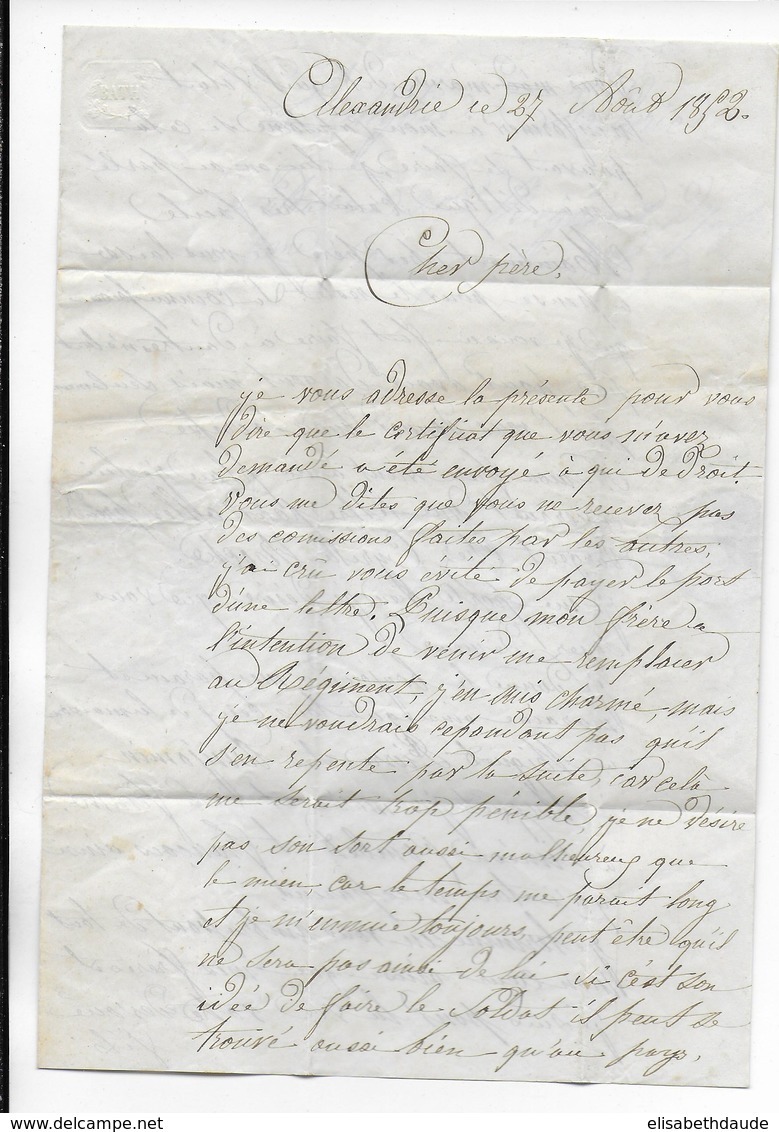 Alexandrie le 27 Août 1852.
Cher père,
je vous adresse la présente pour vous
dire que le certificat que vous m'avez
demandé a été envoyé à qui de droit.
Vous me dites que vous ne recevez pas
des comissions faites par les autres,
j'ai cru vous évité de payer le port
d'une lettre. Puisque mon frère a
l'intention de venir me remplacer
au Régiment, j'en suis charmé, mais
je ne voudrais cependant pas qu'il
s'en repente par la suite, car celà
me serait trop pénible, je ne désire
pas son sort aussi malheureux que
le mien, car le temps me parait long
et je m'ennuie toujours, peut être qu'il
ne sera pas ainsi de lui si c'est son
idée de faire le Soldat il peut se
trouvé aussi bien qu'au pays,
elisabethdaude